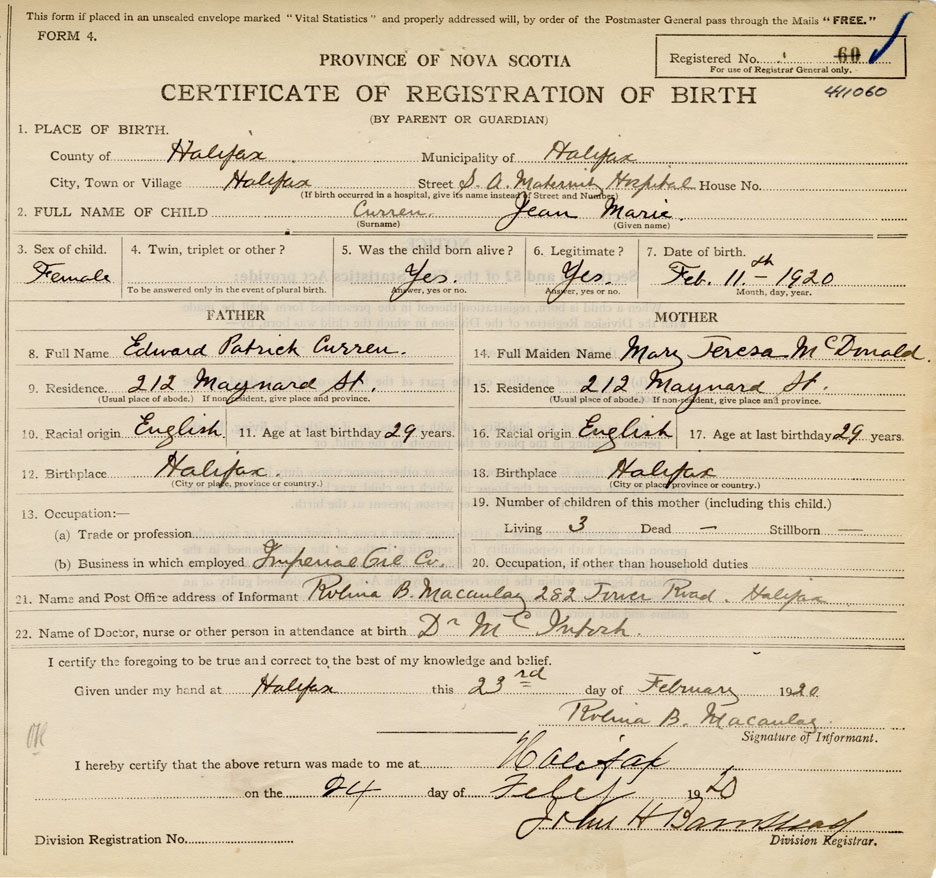 This form if placed in an unsealed envelope marked "Vital Statistics" and properly addressed will, by order of the Postmaster General pass through the Mails "FREE."
FORM 4.
Registered No. 60
For use of Registrar General only.
441060
PROVINCE OF NOVA SCOTIA
CERTIFICATE OF REGISTRATION OF BIRTH
(BY PARENT OR GUARDIAN)
1. PLACE OF BIRTH.
County of Halifax Municipality of Halifax
City, Town or Village Halifax Street S. A. Maternity Hospital House No.
(If birth occurred in a hospital, give its name instead of Street and Number)
2. FULL NAME OF CHILD Curren. Jean Marie.
(Surname) (Given name)
3. Sex of child. 4. Twin, triplet or other? 5. Was the child born alive? 6. Legitimate? 7. Date of birth.
Female Yes. Yes. Feb. 11th 1920
To be answered only in the event of plural birth. Answer, yes or no. Answer, yes or no. Month, day, year.
FATHER MOTHER
8. Full Name Edward Patrick Curren. 14. Full Maiden Name Mary Teresa McDonald.
9. Residence. 212 Maynard St. 15. Residence 212 Maynard St.
(Usual place of abode.) If non-resident, give place and province. (Usual place of abode.) If non-resident, give place and province.
10. Racial origin English. 11. Age at last birthday 29 years. 16. Racial origin English 17. Age at last birthday 29 years.
12. Birthplace Halifax 18. Birthplace Halifax
(City or place, province or country.) (City or place, province or country.)
13. Occupation:— 19. Number of children of this mother (including this child.)
(a) Trade or profession Living 3 Dead — Stillborn —
(b) Business in which employed Imperial Oil Co. 20. Occupation, if other than household duties
21. Name and Post Office address of Informant Rolina B. Macaulay 282 Tower Road. Halifax
22. Name of Doctor, nurse or other person in attendance at birth Dr McIntosh.
I certify the foregoing to be true and correct to the best of my knowledge and belief.
Given under my hand at Halifax this 23rd day of February 1920
Rolina B. Macaulay
Signature of Informant.
I hereby certify that the above return was made to me at Halifax
on the 24 day of Feby 1920
John H Barnstead
Division Registration No. Division Registrar.